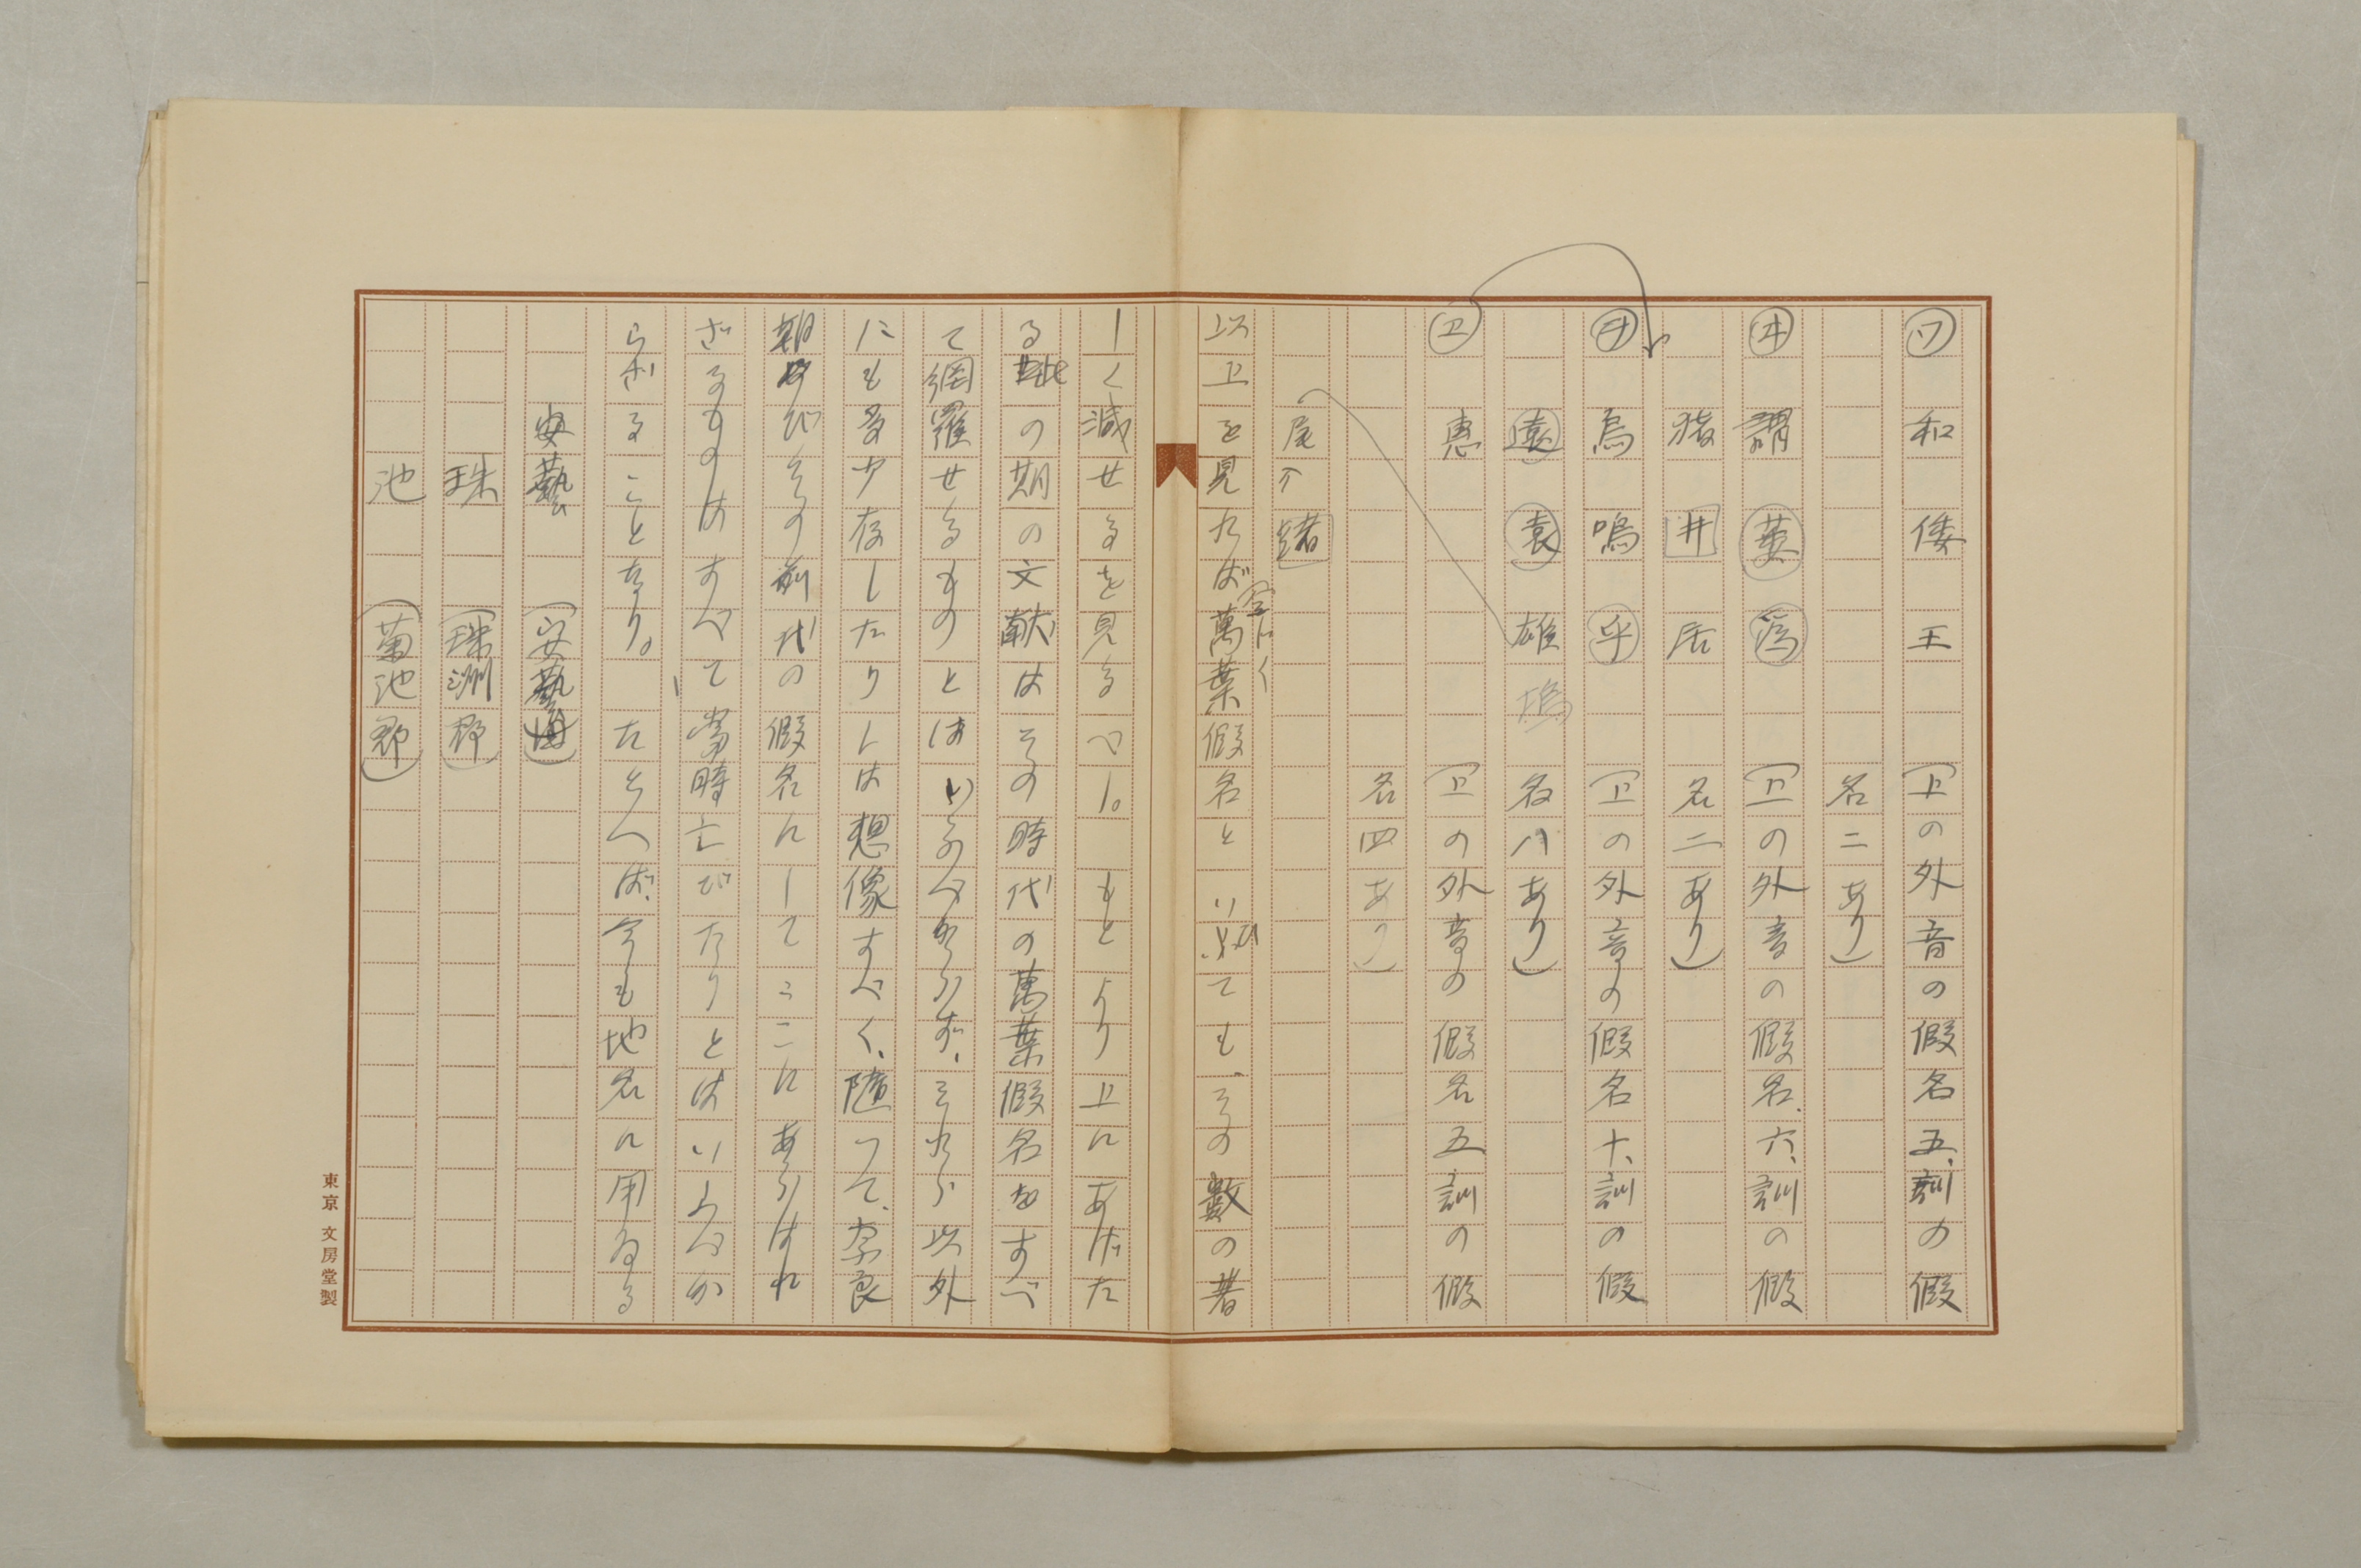 ワ 和 倭 王 (卫の外音の假名五、訓の假
名二あり)
ヰ 謂 萎 爲 (卫の外音の假名、六、訓の假
猪 井 居 名二あり)
ヲ 烏 嗚 乎 (卫の外音の假名十、訓の假
遠 袁 雄 塢 名八あり)
卫 惠 (卫の外音の假名五訓の假
名四あり)
尾 緒
以上を見れば萬葉假名といひても、その數の著
しく減せるを見るべし。もとより上にあげた
るの期の文献はその時代の萬葉假名をすべ
て網羅せるものとはいふべからず、それら以外
にも多少存したりしは想像すべく、隨つて、奈良
朝及びその前代の假名にしてここにあらはれ
ざるものはすべて當時亡びたりとはいふべか
らざることなり。たとへば、今も地名に用ゐる
安藝 (安藝
珠 (珠洲郡)
池 (菊池郡)
東京 文房堂製